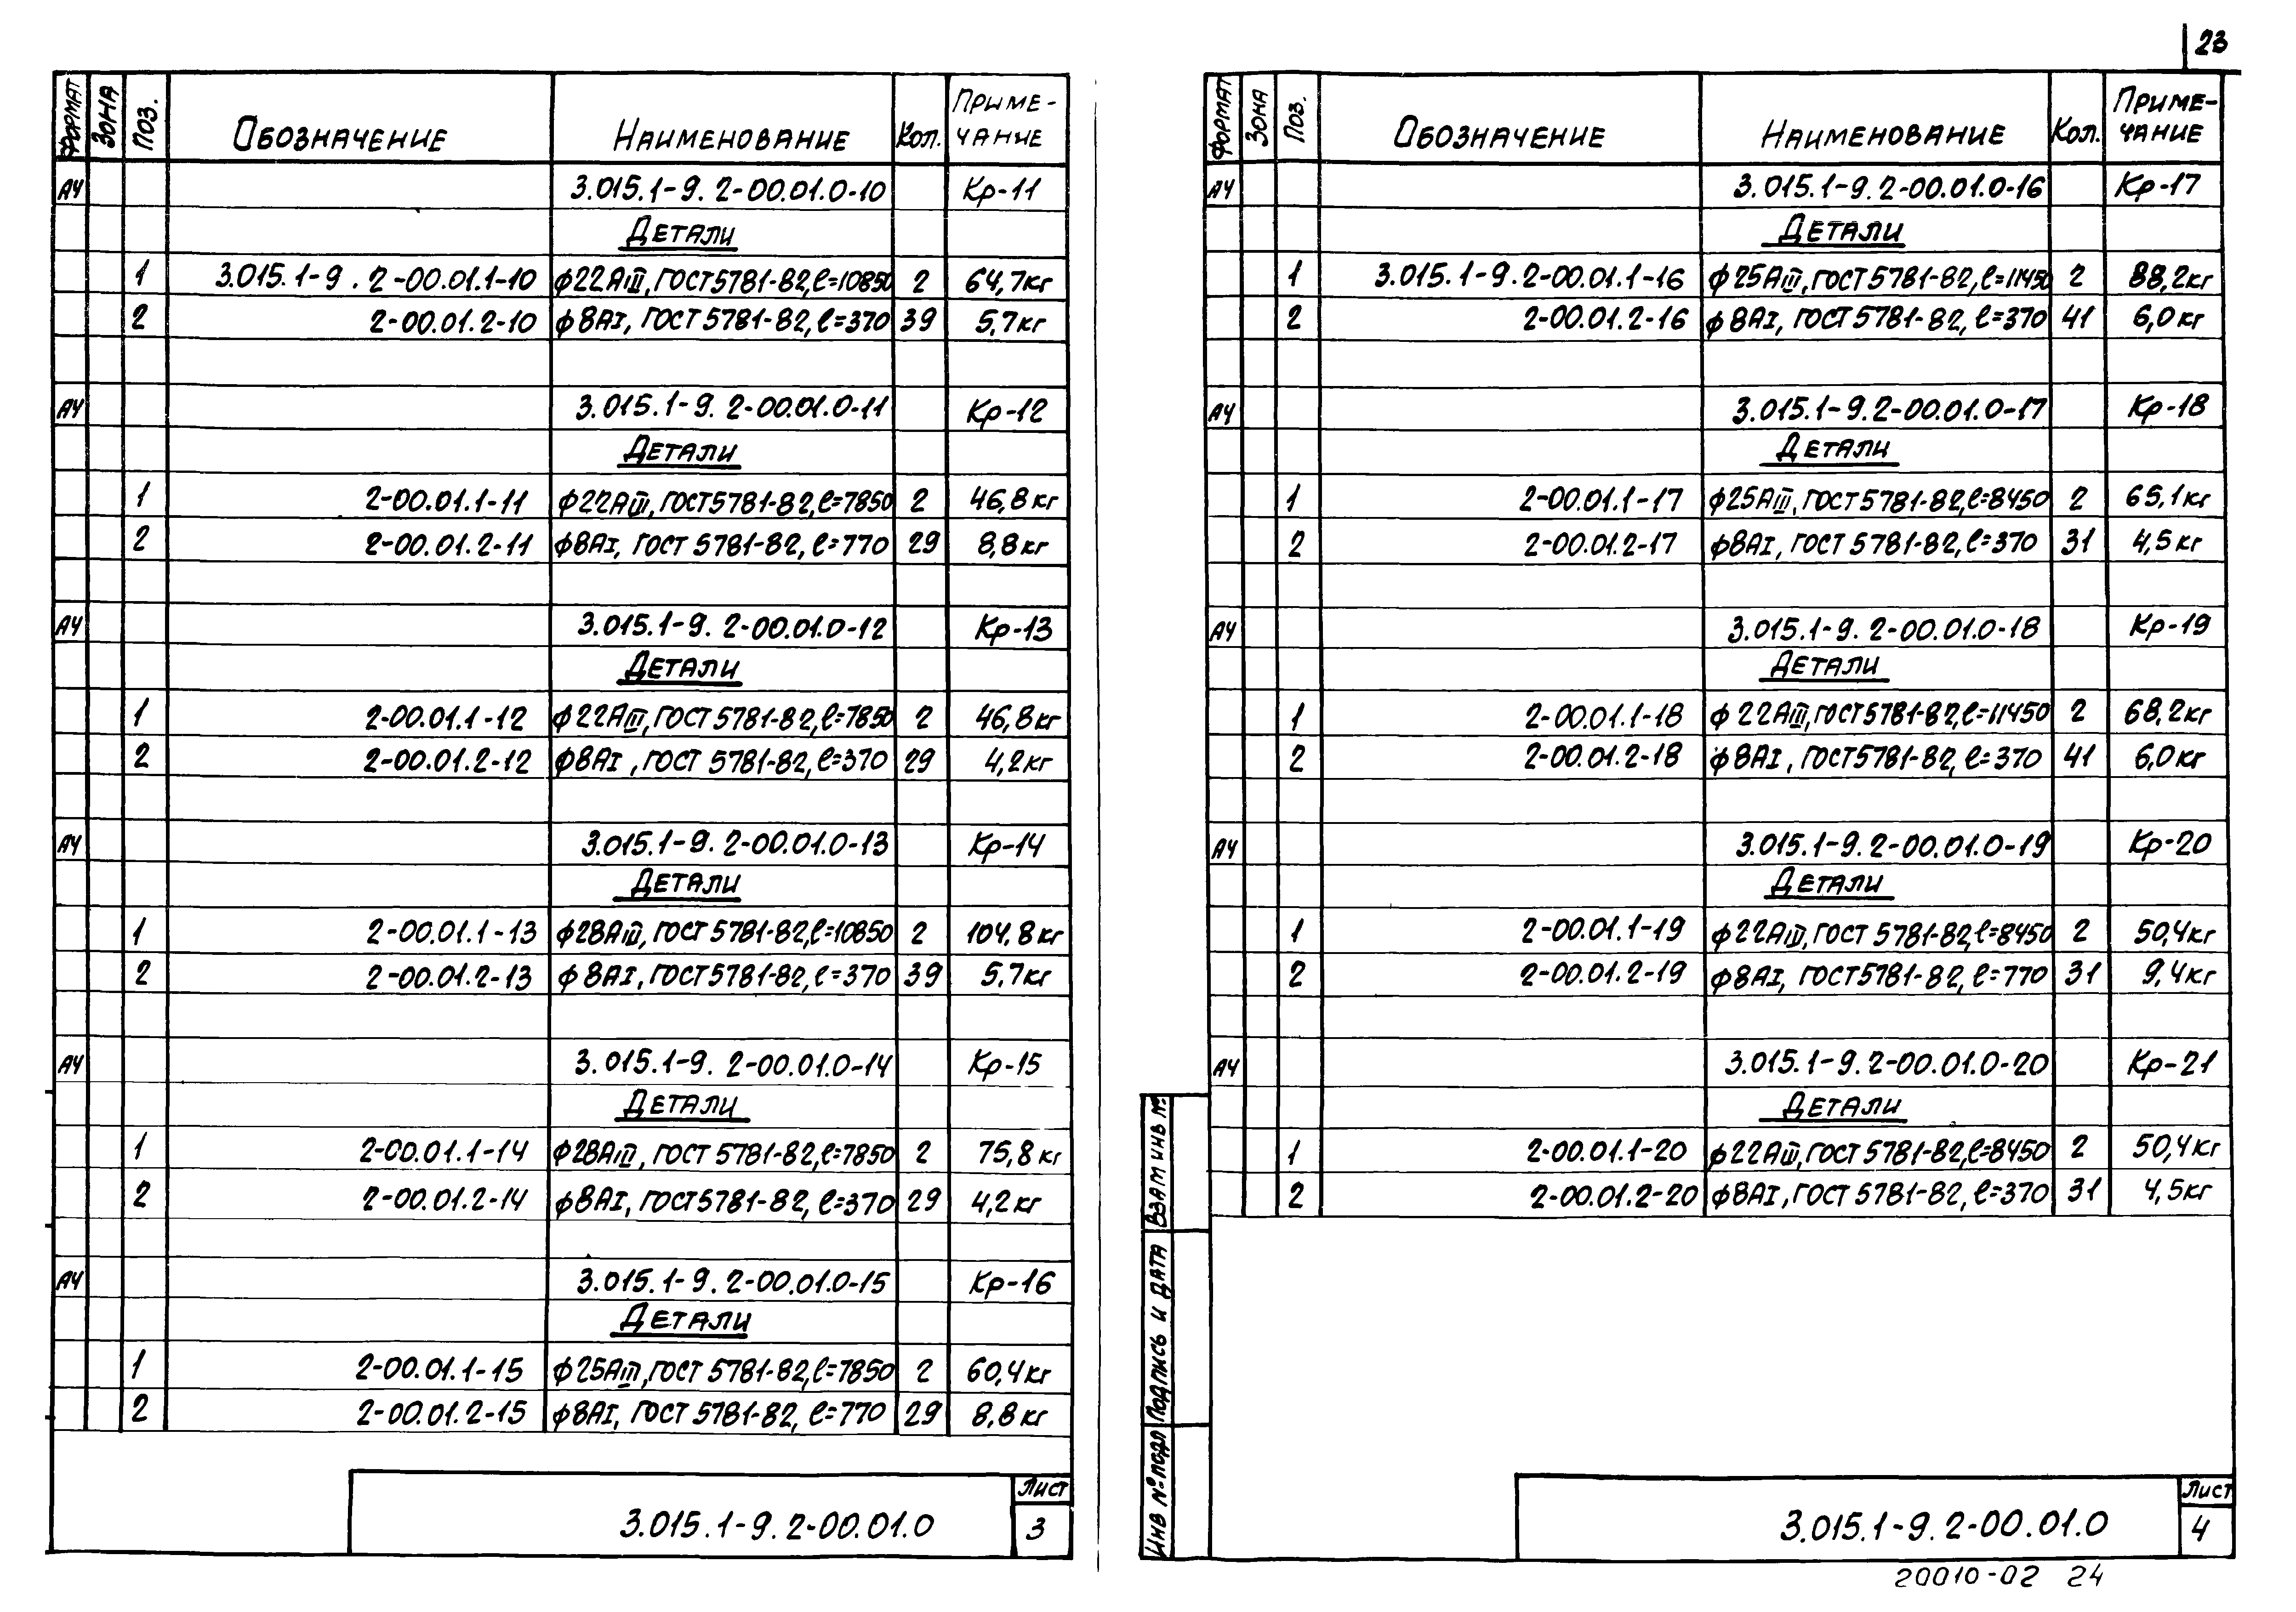 23
Формат Зона Поз. Обозначение Наименование Кол. Приме-чание
А4 3.015.1-9. 2-00.01.0-10 Кр-11
Детали
1 3.015.1-9. 2-00.01.1-10 ф22АIII, ГОСТ 5781-82, ℓ=10850 2 64,7кг
2 2-00.01.2-10 ф8АI, ГОСТ 5781-82, ℓ=370 39 5,7кг
А4 3.015.1-9. 2-00.01.0-11 Кр-12
Детали
1 2-00.01.1-11 ф22АIII, ГОСТ 5781-82, ℓ=7850 2 46,8кг
2 2-00.01.2-11 ф8АI, ГОСТ 5781-82, ℓ=770 29 8,8кг
А4 3.015.1-9. 2-00.01.0-12 Кр-13
Детали
1 2-00.01.1-12 ф22АIII, ГОСТ 5781-82, ℓ=7850 2 46,8кг
2 2-00.01.2-12 ф8АI, ГОСТ 5781-82, ℓ=370 29 4,2кг
А4 3.015.1-9. 2-00.01.0-13 Кр-14
Детали
1 2-00.01.1-13 ф28АIII, ГОСТ 5781-82, ℓ=10850 2 104,8кг
2 2-00.01.2-13 ф8АI, ГОСТ 5781-82, ℓ=370 39 5,7кг
А4 3.015.1-9. 2-00.01.0-14 Кр-15
Детали
1 2-00.01.1-14 ф28АIII, ГОСТ 5781-82, ℓ=7850 2 75,8кг
2 2-00.01.2-14 ф8АI, ГОСТ 5781-82, ℓ=370 29 4,2кг
А4 3.015.1-9. 2-00.01.0-15 Кр-16
Детали
1 2-00.01.1-15 ф25АIII, ГОСТ 5781-82, ℓ=7850 2 60,4кг
2 2-00.01.2-15 ф8АI, ГОСТ 5781-82, ℓ=770 29 8,8кг
3.015.1-9. 2-00.01.0 Лист
3
Формат Зона Поз. Обозначение Наименование Кол. Приме-чание
А4 3.015.1-9. 2-00.01.0-16 Кр-17
Детали
1 3.015.1-9. 2-00.01.1-16 ф25АIII, ГОСТ 5781-82, ℓ=11450 2 88,2кг
2 2-00.01.2-16 ф8АI, ГОСТ 5781-82, ℓ=370 41 6,0кг
А4 3.015.1-9. 2-00.01.0-17 Кр-18
Детали
1 2-00.01.1-17 ф25АIII, ГОСТ 5781-82, ℓ=8450 2 65,1кг
2 2-00.01.2-17 ф8АI, ГОСТ 5781-82, ℓ=370 31 4,5кг
А4 3.015.1-9. 2-00.01.0-18 Кр-19
Детали
1 2-00.01.1-18 ф22АIII, ГОСТ 5781-82, ℓ=11450 2 68,2кг
2 2-00.01.2-18 ф8АI, ГОСТ 5781-82, ℓ=370 41 6,0кг
А4 3.015.1-9. 2-00.01.0-19 Кр-20
Детали
1 2-00.01.1-19 ф22АIII, ГОСТ 5781-82, ℓ=8450 2 50,4кг
2 2-00.01.2-19 ф8АI, ГОСТ 5781-82, ℓ=770 31 9,4кг
А4 3.015.1-9. 2-00.01.0-20 Кр-21
Детали
1 2-00.01.1-20 ф22АIII, ГОСТ 5781-82, ℓ=8450 2 50,4кг
2 2-00.01.2-20 ф8АI, ГОСТ 5781-82, ℓ=370 31 4,5кг
Взам инв №
Подпись и дата
Инв № подл
3.015.1-9. 2-00.01.0 Лист
4
20010-02 24